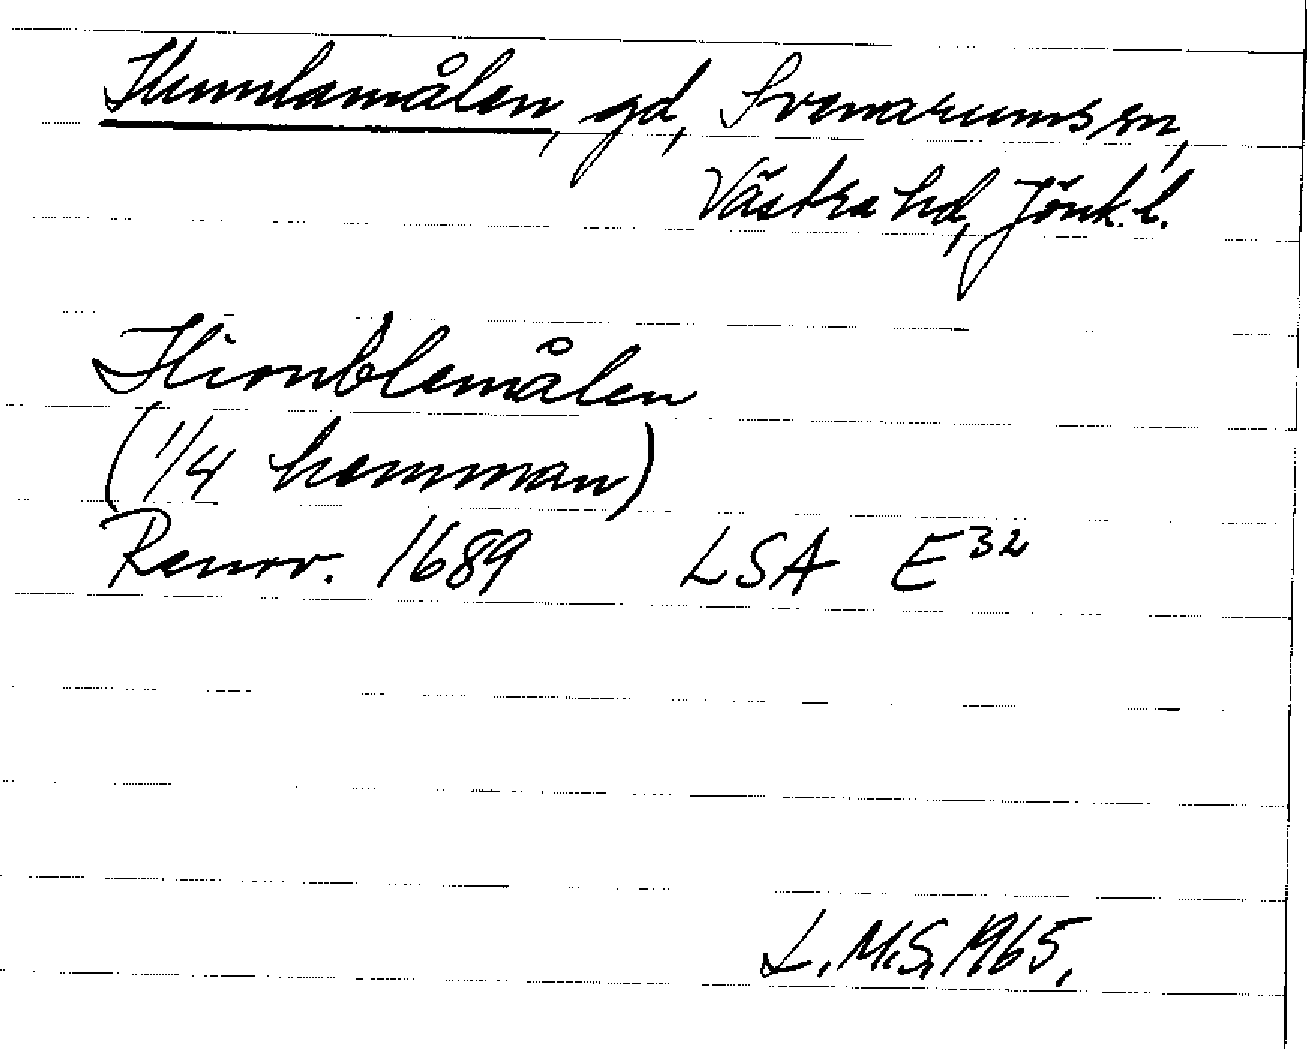 Humlamålen, gd, Svenarums sn,
Västra hd, Jönk. l.
Hiomblemålen
(1/4 hemman)
Renov. 1689 LSA E³²
L.M.S. 1965.